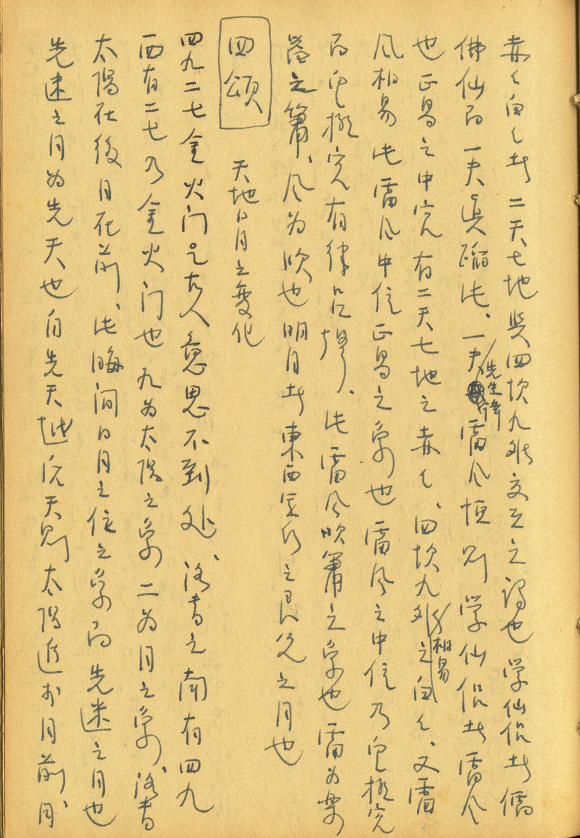 赤々白々者 二天七地与四坎九離交互之謂也 学仙侶者儒
佛仙而一夫真蹈也、一夫先生諱雷風恒則 学仙侶者雷風
也 正易之中宮有二天七地之赤々、四坎九離相易之白々、又雷
風相易 此雷風中位正易之象也 雷風之中位乃皇極宮
而皇極宮有律呂 此雷風吹簫之象也 雷為
之簫、風為吹也 明月者 東西之艮兌之月也
四頌 天地日月之變化
四九二七金火门是古人意思不到处、洛書之南有四九
西有二七乃金火门也 九為太陽之象 二為月之象、洛書
太陽在後月在前、此晦间日月之位之象而先迷之月也
先迷之月為先天也 自先天 后天則太陽 於月前、月